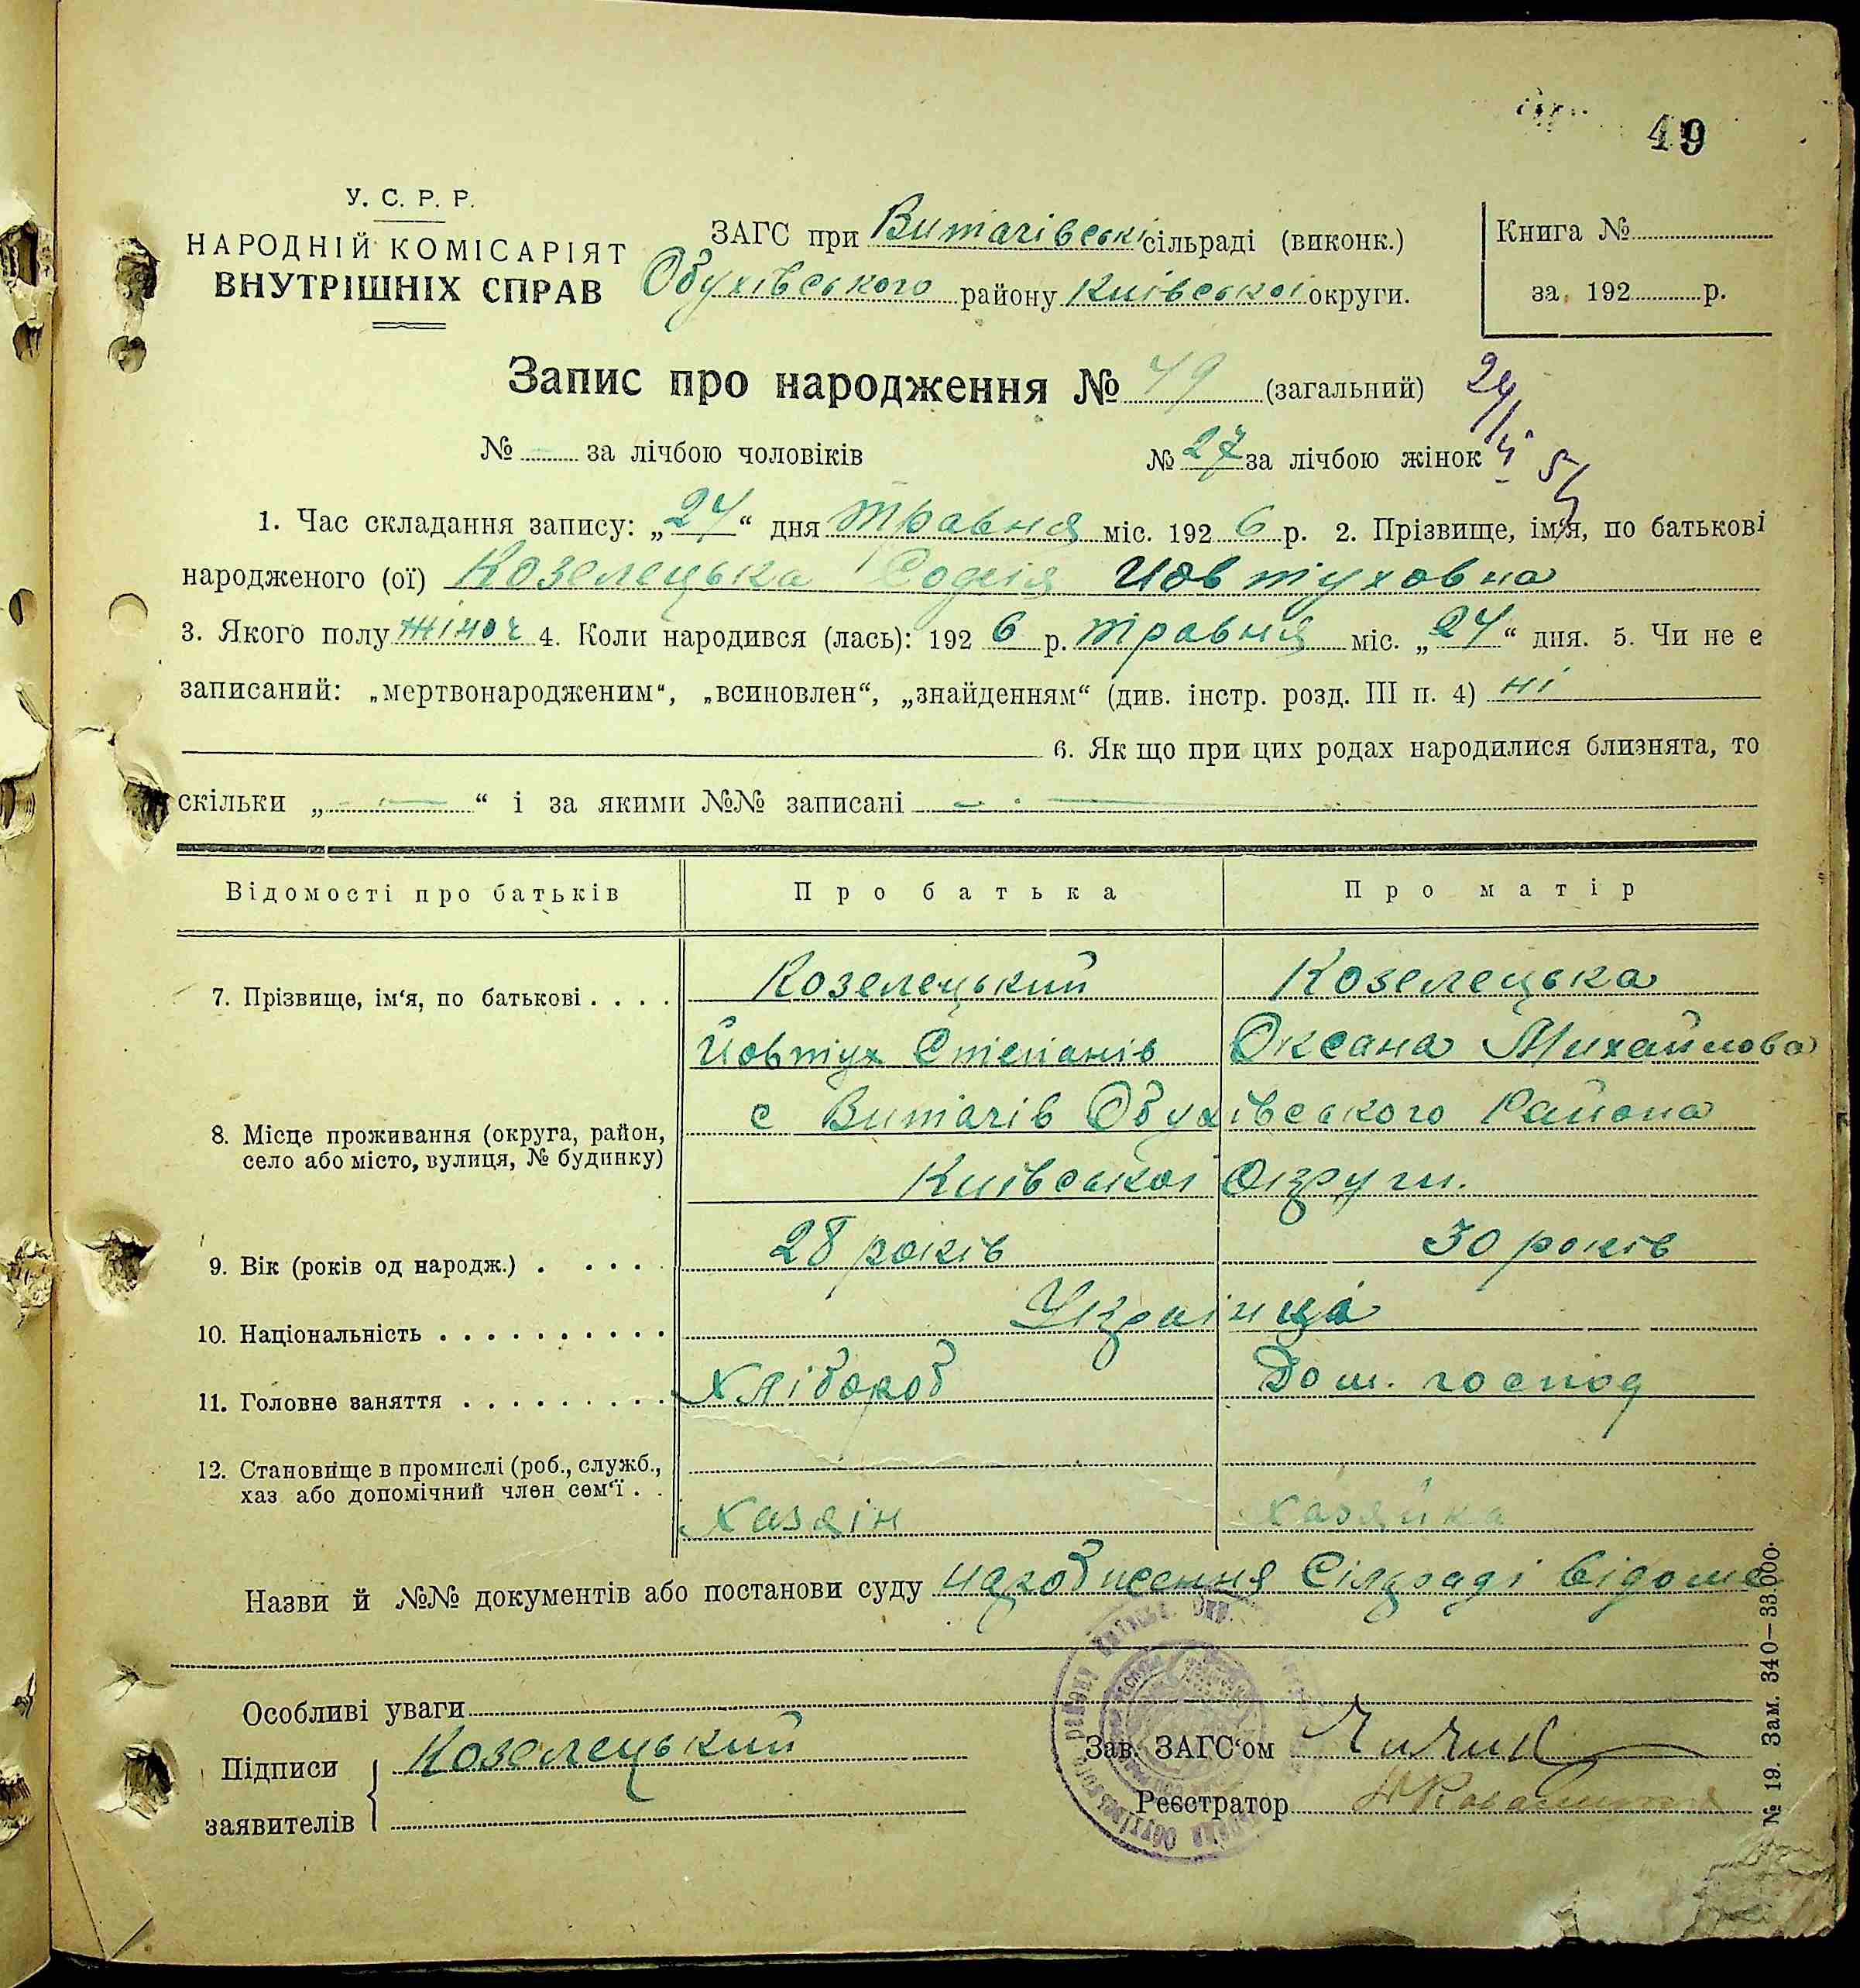 49
У. С. Р. Р.
НАРОДНІЙ КОМІСАРІЯТ
ВНУТРІШНІХ СПРАВ
ЗАГС при Витачівські сільраді (виконк.)
Обухівського району Київської округи.
Книга №
за 192 р.
Запис про народження № 49 (загальний)
№ — за лічбою чоловіків № 27 за лічбою жінок
1. Час складання запису: „24“ дня травня міс. 1926 р. 2. Прізвище, ім'я, по батькові
народженого (ої) Козелецька Софія Йовтуховна
3. Якого полу жіноч 4. Коли народився (лась): 1926 р. травня міс. „24“ дня. 5. Чи не є
записаний: „мертвонародженим“, „всиновлен“, „знайденням“ (див. інстр. розд. III п. 4) ні
6. Як що при цих родах народилися близнята, то
скільки „—“ і за якими №№ записані —
Відомості про батьків Про батька Про матір
7. Прізвище, ім'я, по батькові . . . . Козелецький Козелецька
Йовтух Степанів Оксана Михайлова
8. Місце проживання (округа, район, село або місто, вулиця, № будинку) с Витачів Обухівського Района
Київської Округи.
9. Вік (років од народж.) . . . . . 28 років 30 років
10. Національність . . . . . . . . . . Українці
11. Головне заняття . . . . . . . . . Хлібороб Дом. господ
12. Становище в промислі (роб., служб.,
хаз або допомічний член сем'ї . .
Хазяін Хазяйка
Назви й №№ документів або постанови суду народження Сілраді відоме
Особливі уваги
Підписи заявителів Козелецький
Зав. ЗАГС'ом
Реєстратор
№ 19. Зам. 340—33.000.